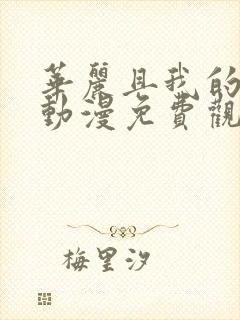 華麗具我的
動漫免費觀
梅里汐